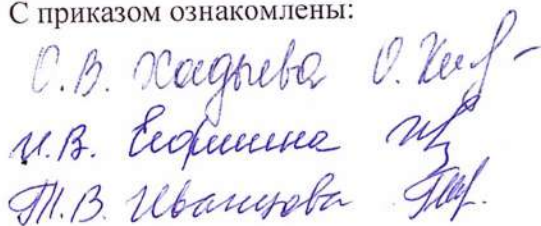 С приказом ознакомлены:
О.В. Хадыева
И.В. Ефимина
Т.В. Иванцова